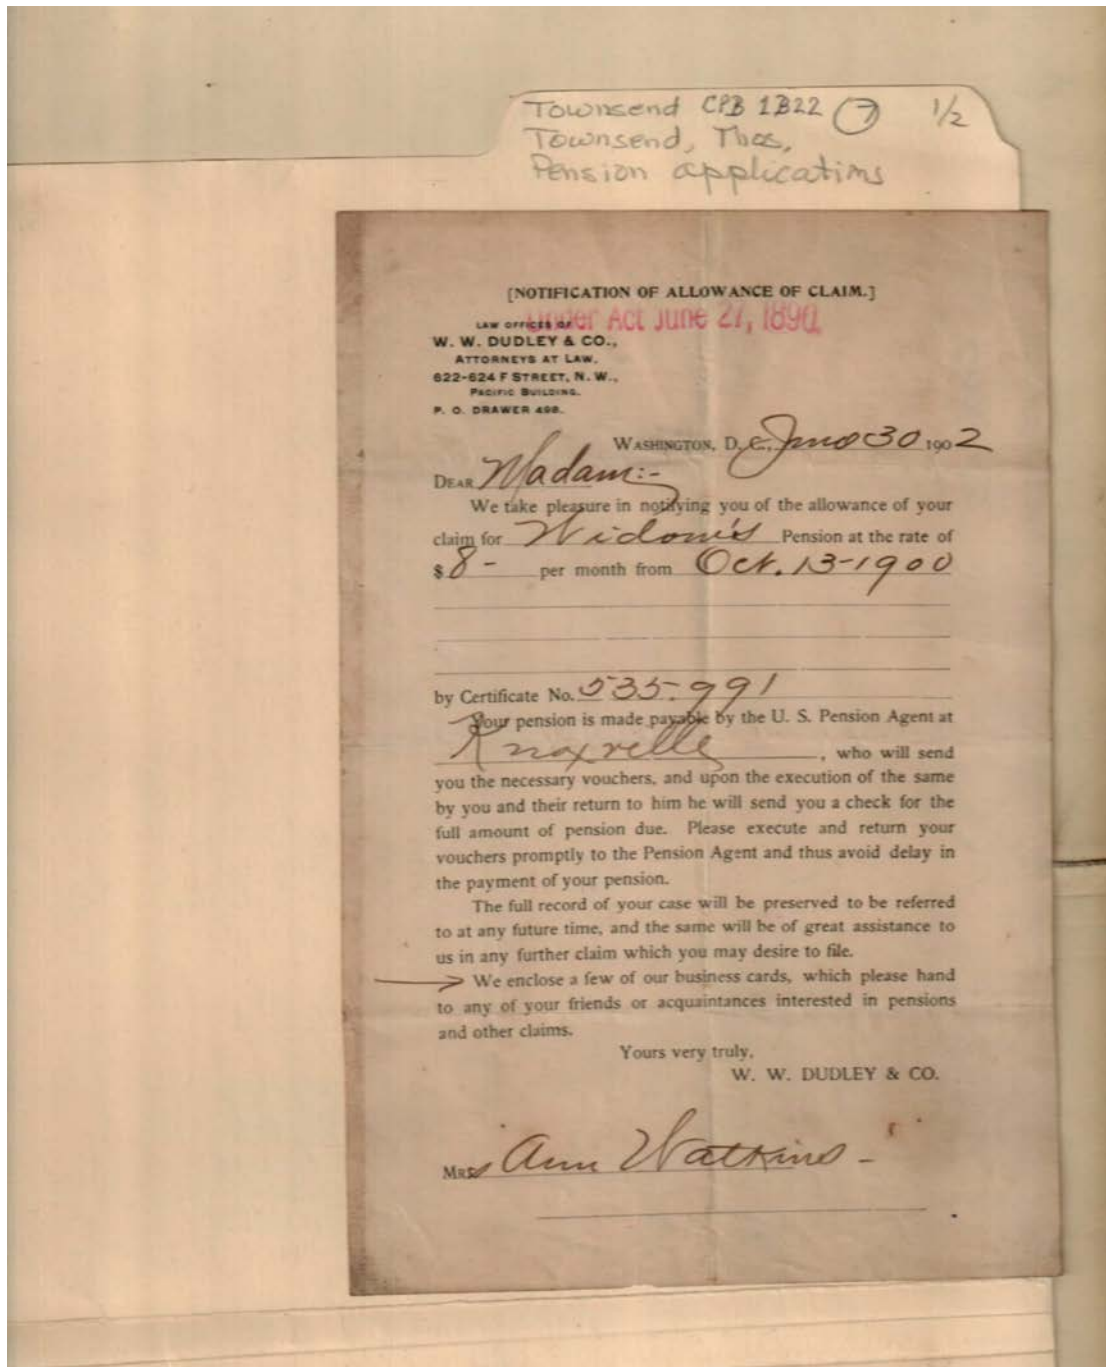 Townsend CPB 1B22 7 1/2
Townsend, Thos,
Pension applications
[NOTIFICATION OF ALLOWANCE OF CLAIM.]
Under Act June 27, 1890.
LAW OFFICES OF
W. W. DUDLEY & CO.,
ATTORNEYS AT LAW,
622-624 F STREET, N. W.,
PACIFIC BUILDING.
P. O. DRAWER 498.
WASHINGTON, D. C., June 30 1902
DEAR Madam:-
We take pleasure in notifying you of the allowance of your
claim for Widow's Pension at the rate of
$ 8- per month from Oct. 13-1900
by Certificate No. 535.991
Your pension is made payable by the U. S. Pension Agent at
Knoxville, who will send
you the necessary vouchers, and upon the execution of the same
by you and their return to him he will send you a check for the
full amount of pension due. Please execute and return your
vouchers promptly to the Pension Agent and thus avoid delay in
the payment of your pension.
The full record of your case will be preserved to be referred
to at any future time, and the same will be of great assistance to
us in any further claim which you may desire to file.
We enclose a few of our business cards, which please hand
to any of your friends or acquaintances interested in pensions
and other claims.
Yours very truly,
W. W. DUDLEY & CO.
MRS Ann Watkins -